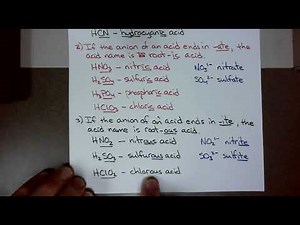 HCN - hydrocyanic acid
2) If the anion of an acid ends in -ate, the
acid name is root-ic acid.
HNO₃ - nitric acid NO₃¹⁻ nitrate
H₂SO₄ - sulfuric acid SO₄²⁻ sulfate
H₃PO₄ - phosphoric acid
HClO₃ - chloric acid
3) If the anion of an acid ends in -ite, the
acid name is root-ous acid.
HNO₂ - nitrous acid NO₂¹⁻ nitrite
H₂SO₃ - sulfurous acid SO₃²⁻ sulfite
HClO₂ - chlorous acid